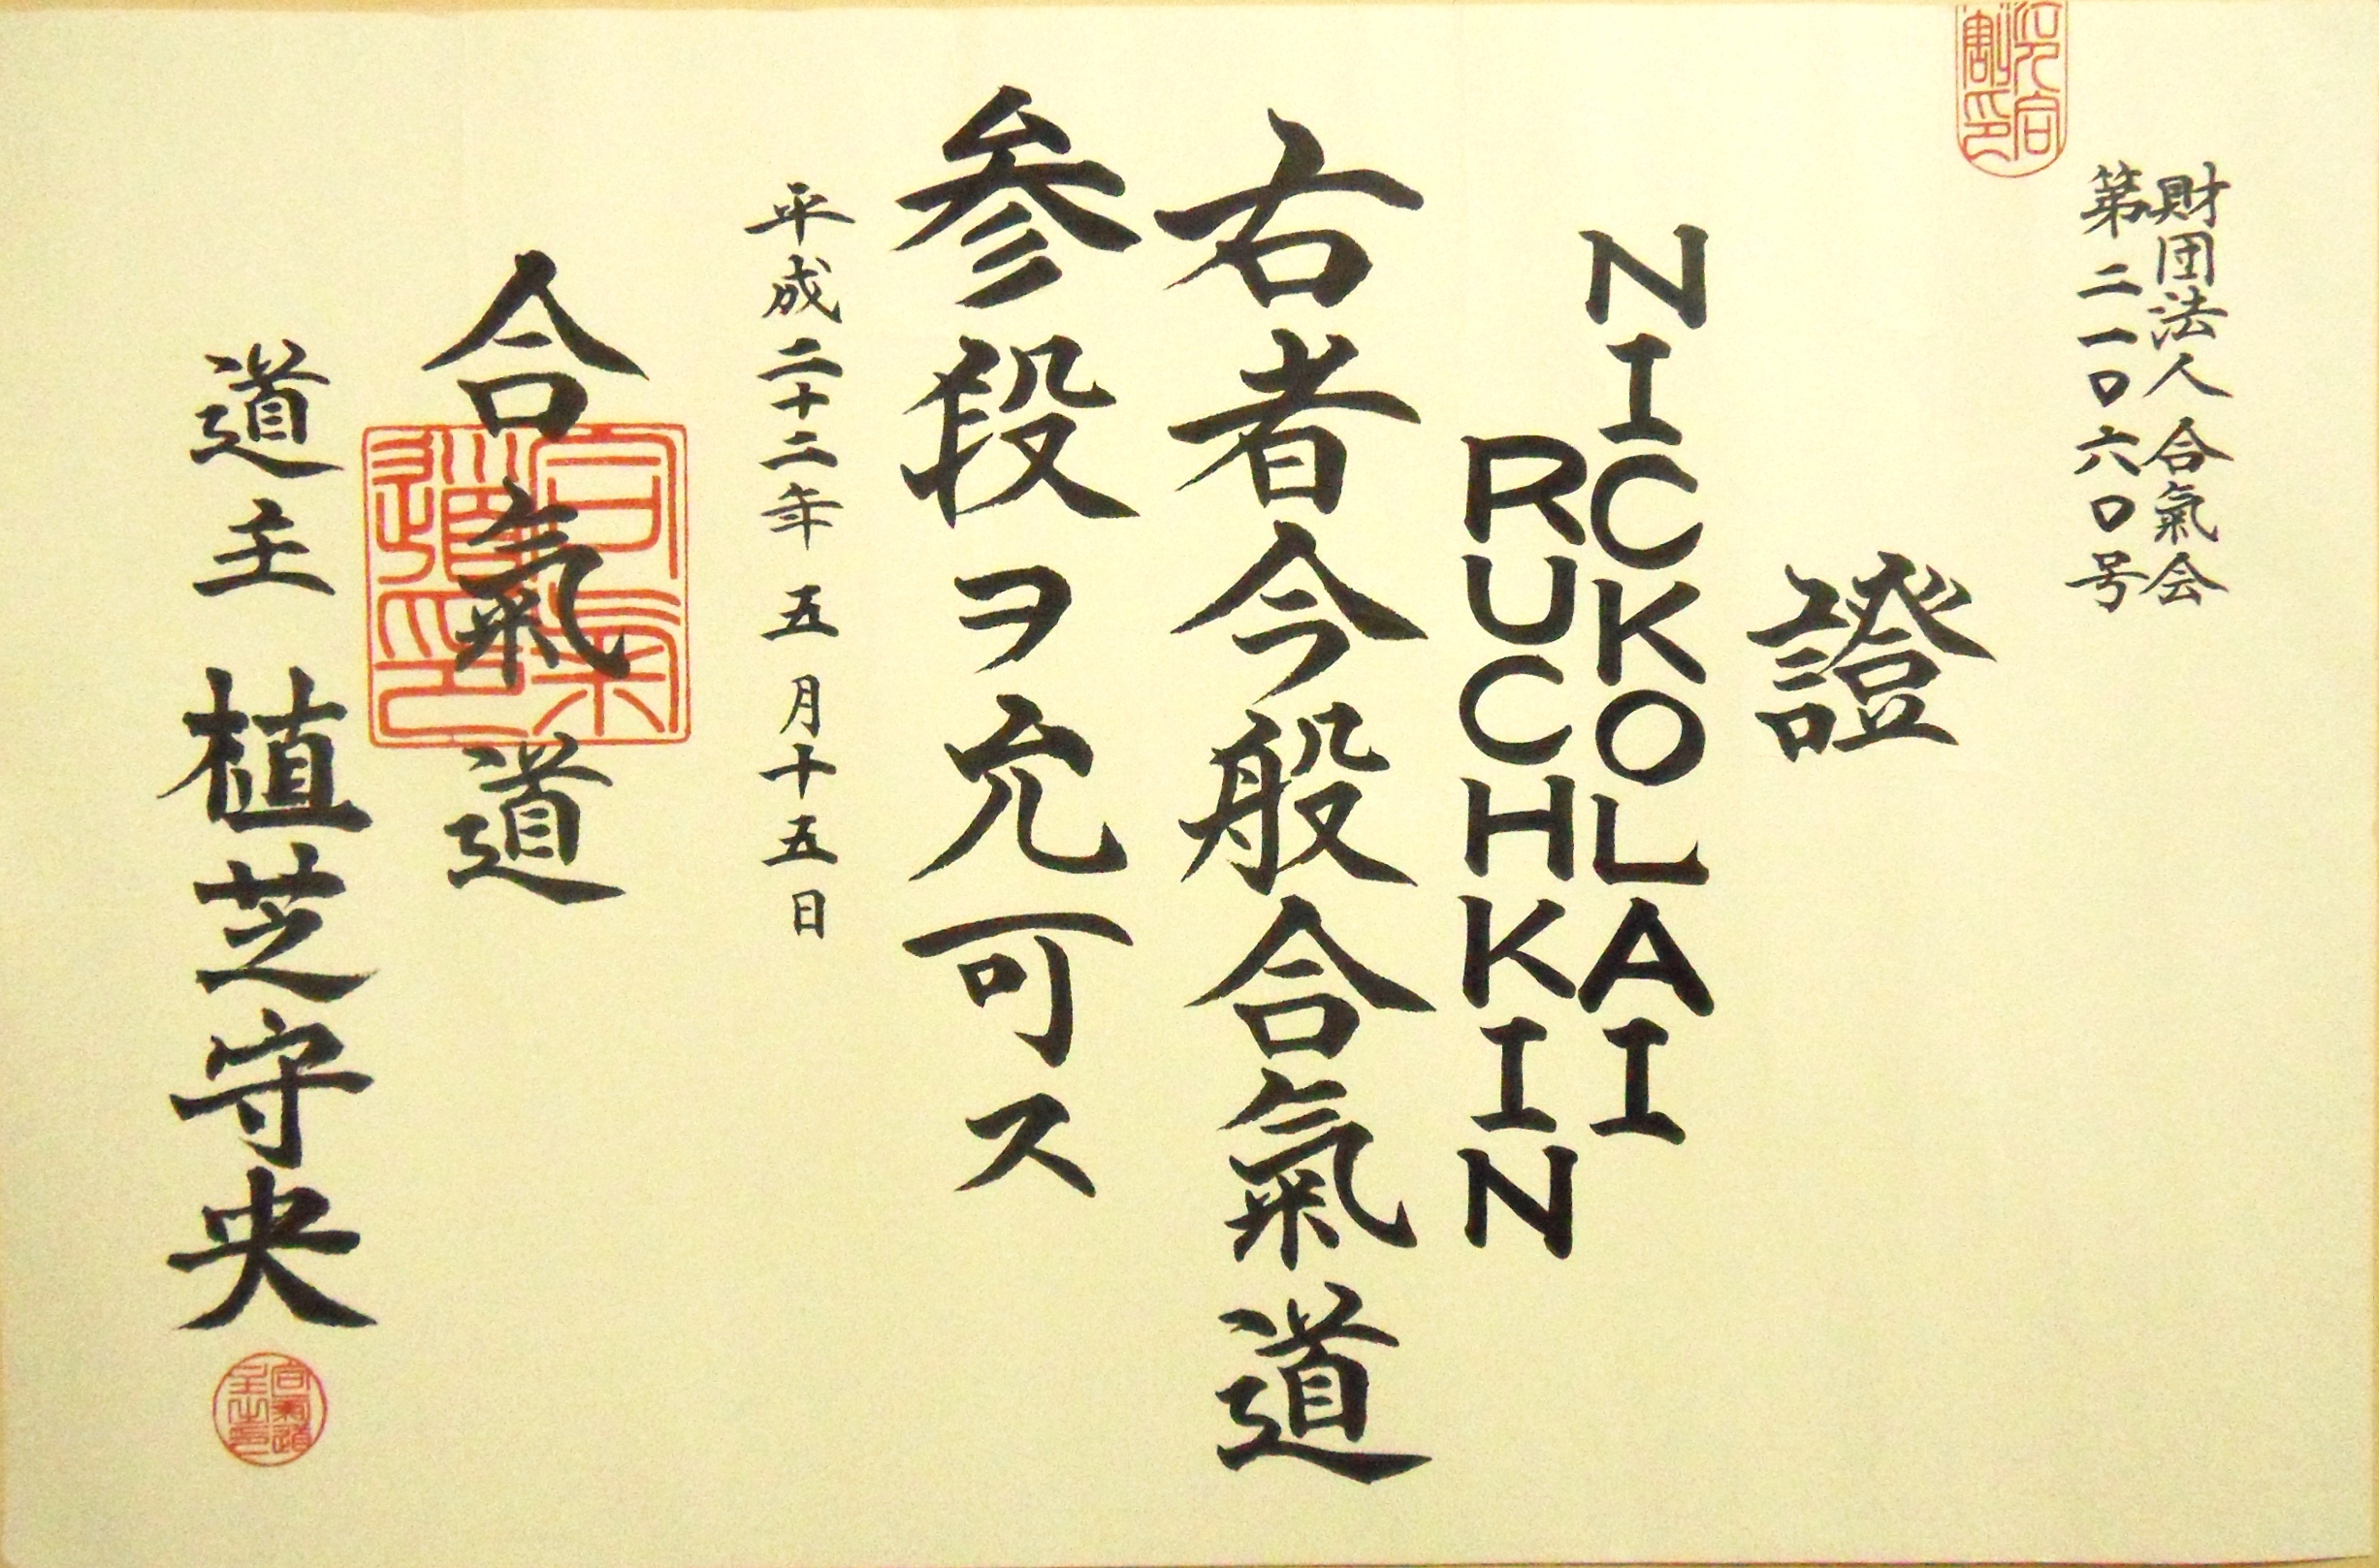 財団法人 合氣会
第二一〇六〇号
證
NICKOLAI
RUCHKIN
右者今般合氣道
参段ヲ允可ス
平成二十二年 五月十五日
合氣道
道主 植芝守央